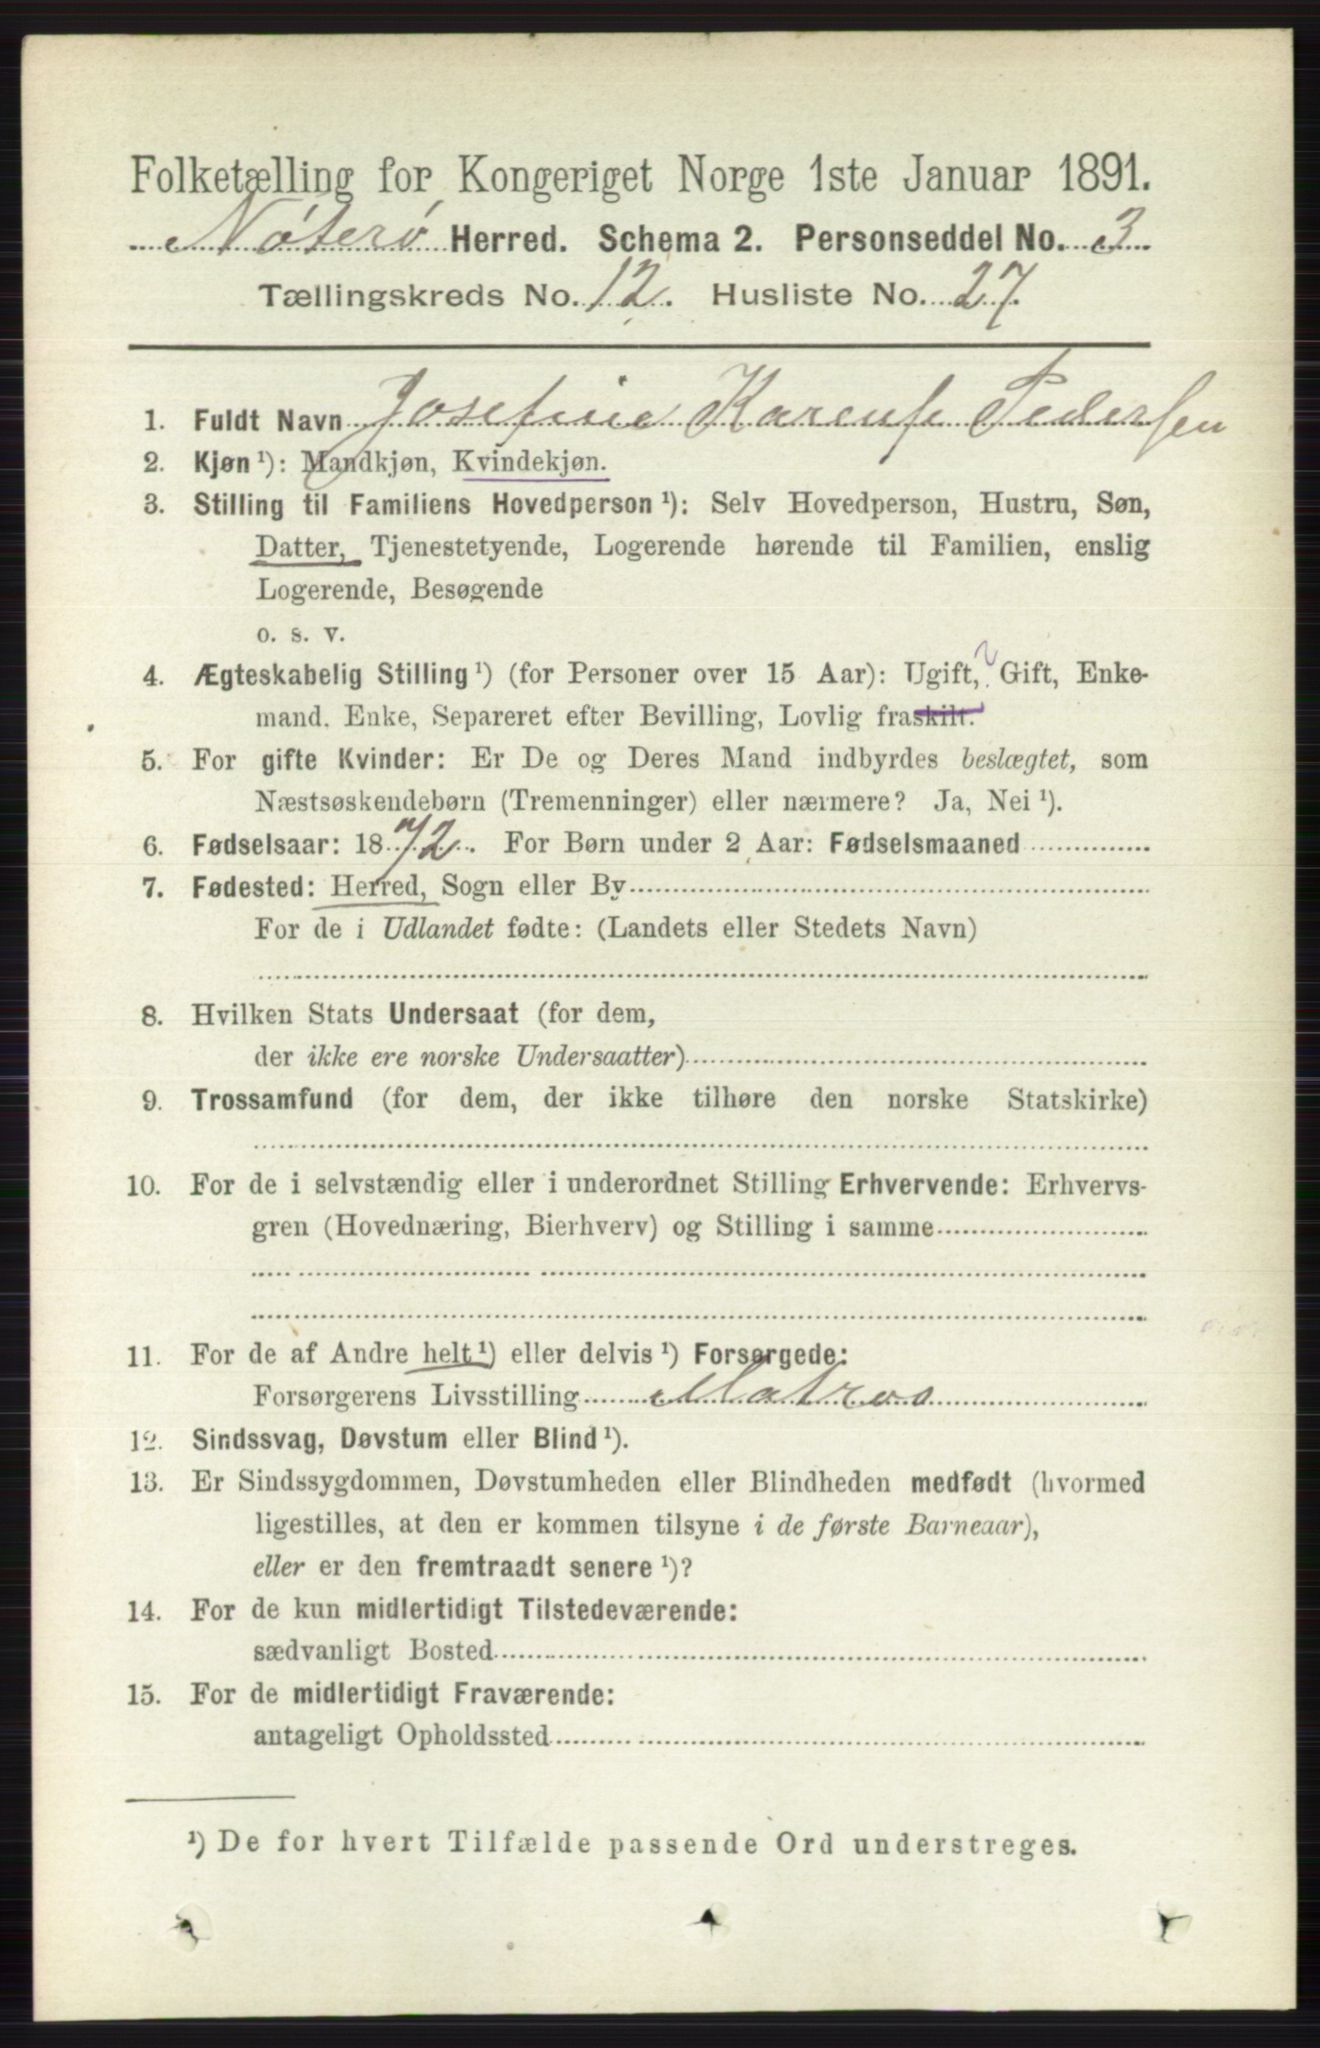 Folketælling for Kongeriget Norge 1ste Januar 1891.
Nøterø Herred. Schema 2. Personseddel No. 3
Tællingskreds No. 12. Husliste No. 27.
1. Fuldt Navn Josefine Pedersen
2. Kjøn ¹): Mandkjøn, Kvindekjøn.
3. Stilling til Familiens Hovedperson ¹): Selv Hovedperson, Hustru, Søn,
Datter, Tjenestetyende, Logerende hørende til Familien, enslig
Logerende, Besøgende
o. s. v.
4. Ægteskabelig Stilling ¹) (for Personer over 15 Aar): Ugift, Gift, Enke-
mand. Enke, Separeret efter Bevilling, Lovlig fraskilt.
5. For gifte Kvinder: Er De og Deres Mand indbyrdes beslægtet, som
Næstsøskendebørn (Tremenninger) eller nærmere? Ja, Nei ¹).
6. Fødselsaar: 1872. For Børn under 2 Aar: Fødselsmaaned
7. Fødested: Herred, Sogn eller By
For de i Udlandet fødte: (Landets eller Stedets Navn)
8. Hvilken Stats Undersaat (for dem,
der ikke ere norske Undersaatter)
9. Trossamfund (for dem, der ikke tilhøre den norske Statskirke)
10. For de i selvstændig eller i underordnet Stilling Erhvervende: Erhvervs-
gren (Hovednæring, Bierhverv) og Stilling i samme
11. For de af Andre helt ¹) eller delvis ¹) Forsørgede:
Forsørgerens Livsstilling Matros
12. Sindssvag, Døvstum eller Blind ¹).
13. Er Sindssygdommen, Døvstumheden eller Blindheden medfødt (hvormed
ligestilles, at den er kommen tilsyne i de første Barneaar),
eller er den fremtraadt senere ¹)?
14. For de kun midlertidigt Tilstedeværende:
sædvanligt Bosted
15. For de midlertidigt Fraværende:
antageligt Opholdssted
¹) De for hvert Tilfælde passende Ord understreges.